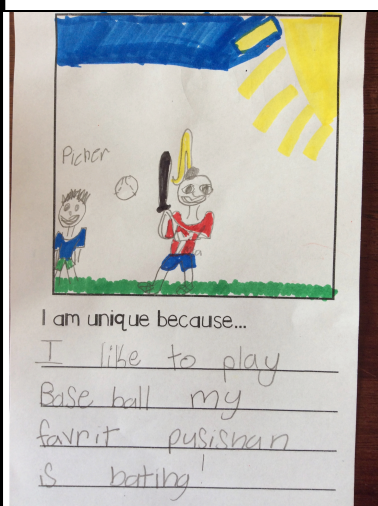 Picher
I am unique because...
I like to play
Base ball my
favrit pusishan
is bating!